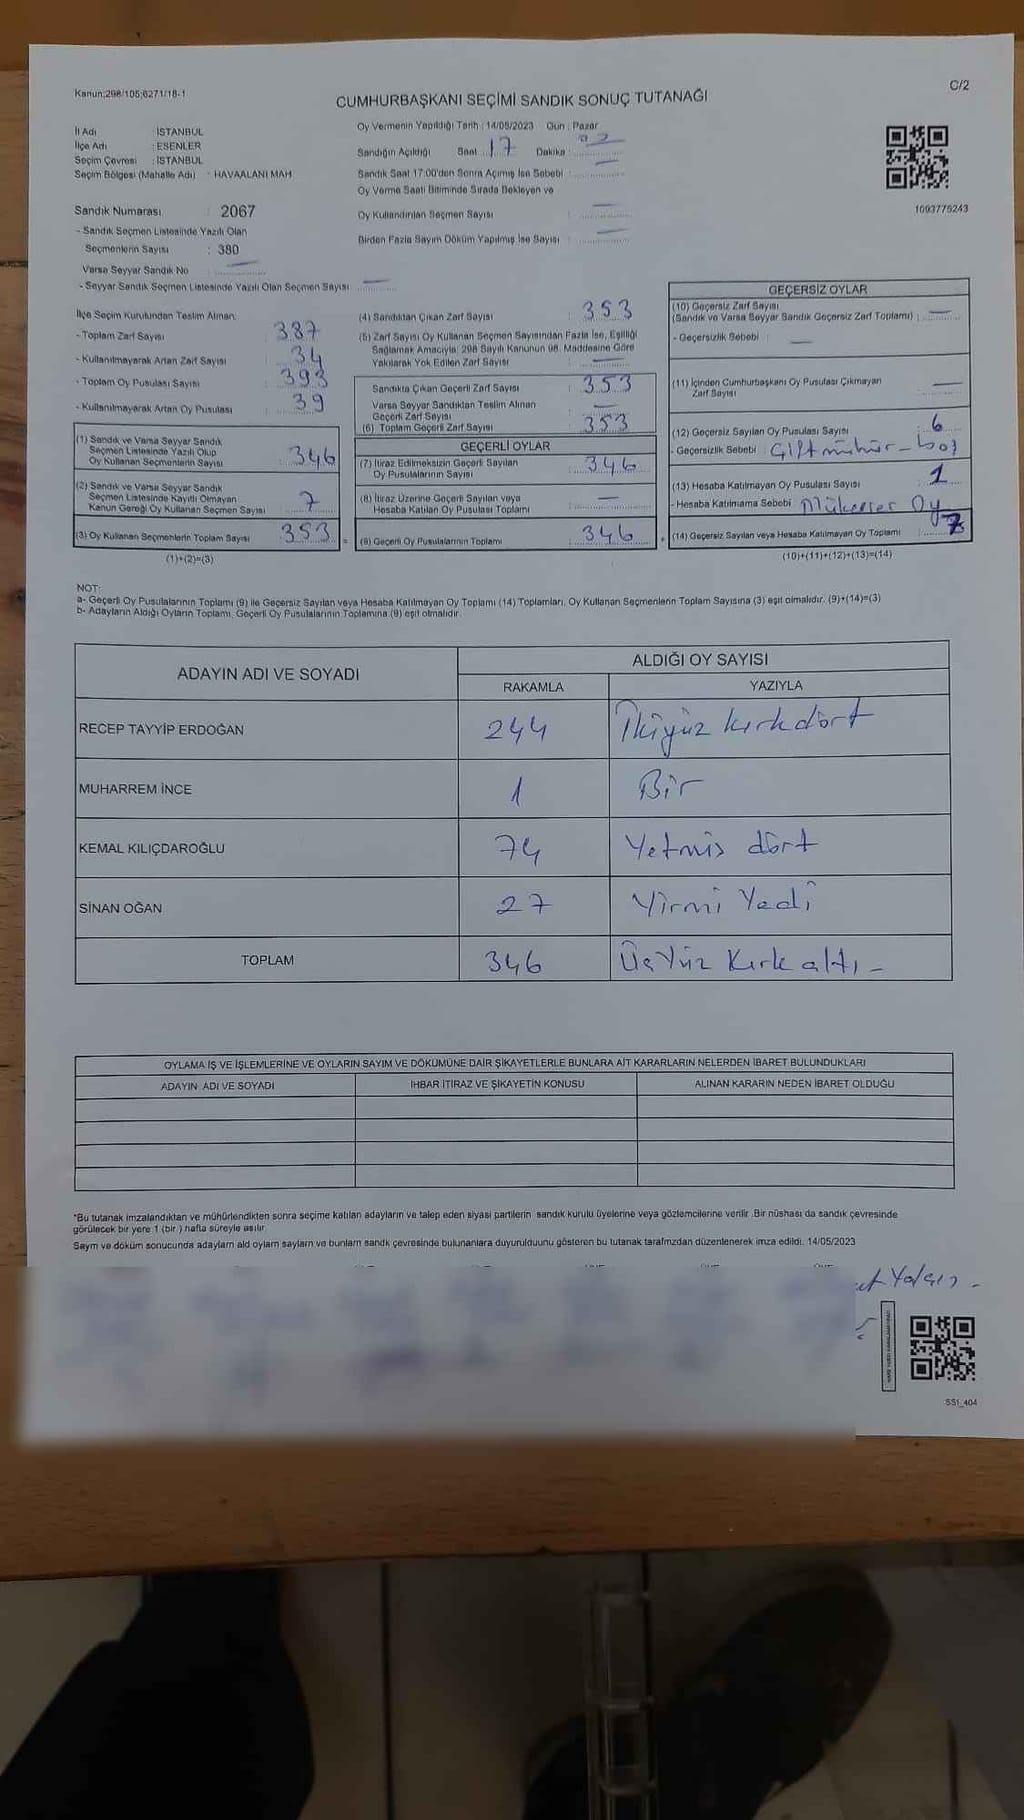 Kanun:298/105;6271/18-1
C/2
CUMHURBAŞKANI SEÇİMİ SANDIK SONUÇ TUTANAĞI
İl Adı : İSTANBUL
İlçe Adı : ESENLER
Seçim Çevresi : İSTANBUL
Seçim Bölgesi (Mahalle Adı) : HAVAALANI MAH
Oy Vermenin Yapıldığı Tarih : 14/05/2023 Gün : Pazar
Sandığın Açıldığı Saat 17 Dakika :
Sandık Saat 17:00'den Sonra Açılmış İse Sebebi :
Oy Verme Saati Bitiminde Sırada Bekleyen ve
Oy Kullandırılan Seçmen Sayısı : —
Birden Fazla Sayım Döküm Yapılmış İse Sayısı : —
1093776243
Sandık Numarası : 2067
- Sandık Seçmen Listesinde Yazılı Olan
Seçmenlerin Sayısı : 380
Varsa Seyyar Sandık No : —
- Seyyar Sandık Seçmen Listesinde Yazılı Olan Seçmen Sayısı : —
İlçe Seçim Kurulundan Teslim Alınan:
- Toplam Zarf Sayısı : 387
- Kullanılmayarak Artan Zarf Sayısı : 34
- Toplam Oy Pusulası Sayısı : 393
- Kullanılmayarak Artan Oy Pusulası : 39
(1) Sandık ve Varsa Seyyar Sandık
Seçmen Listesinde Yazılı Olup
Oy Kullanan Seçmenlerin Sayısı : 346
(2) Sandık ve Varsa Seyyar Sandık
Seçmen Listesinde Kayıtlı Olmayan
Kanun Gereği Oy Kullanan Seçmen Sayısı : 7
(3) Oy Kullanan Seçmenlerin Toplam Sayısı : 353
(1)+(2)=(3)
(4) Sandıktan Çıkan Zarf Sayısı : 353
(5) Zarf Sayısı Oy Kullanan Seçmen Sayısından Fazla İse, Eşitliği
Sağlamak Amacıyla; 298 Sayılı Kanunun 98. Maddesine Göre
Yakılarak Yok Edilen Zarf Sayısı : —
Sandıkta Çıkan Geçerli Zarf Sayısı : 353
Varsa Seyyar Sandıktan Teslim Alınan
Geçerli Zarf Sayısı : —
(6) Toplam Geçerli Zarf Sayısı : 353
GEÇERLİ OYLAR
(7) İtiraz Edilmeksizin Geçerli Sayılan
Oy Pusulalarının Sayısı : 346
(8) İtiraz Üzerine Geçerli Sayılan veya
Hesaba Katılan Oy Pusulası Toplamı : —
(9) Geçerli Oy Pusulalarının Toplamı : 346
GEÇERSİZ OYLAR
(10) Geçersiz Zarf Sayısı
(Sandık ve Varsa Seyyar Sandık Geçersiz Zarf Toplamı) : —
- Geçersizlik Sebebi : —
(11) İçinden Cumhurbaşkanı Oy Pusulası Çıkmayan
Zarf Sayısı : —
(12) Geçersiz Sayılan Oy Pusulası Sayısı : 6
- Geçersizlik Sebebi : Çift mühür - boş
(13) Hesaba Katılmayan Oy Pusulası Sayısı : 1
- Hesaba Katılmama Sebebi : Mükerrer Oy
(14) Geçersiz Sayılan veya Hesaba Katılmayan Oy Toplamı : 7
(10)+(11)+(12)+(13)=(14)
NOT:
a- Geçerli Oy Pusulalarının Toplamı (9) ile Geçersiz Sayılan veya Hesaba Katılmayan Oy Toplamı (14) Toplamları, Oy Kullanan Seçmenlerin Toplam Sayısına (3) eşit olmalıdır. (9)+(14)=(3)
b- Adayların Aldığı Oyların Toplamı, Geçerli Oy Pusulalarının Toplamına (9) eşit olmalıdır.
ADAYIN ADI VE SOYADI
ALDIĞI OY SAYISI
RAKAMLA YAZIYLA
RECEP TAYYİP ERDOĞAN 244 İkiyüz kırkdört
MUHARREM İNCE 1 Bir
KEMAL KILIÇDAROĞLU 74 Yetmis dört
SİNAN OĞAN 27 Yirmi Yedi
TOPLAM 346 Üçyüz Kırk altı -
OYLAMA İŞ VE İŞLEMLERİNE VE OYLARIN SAYIM VE DÖKÜMÜNE DAİR ŞİKAYETLERLE BUNLARA AİT KARARLARIN NELERDEN İBARET BULUNDUKLARI
ADAYIN ADI VE SOYADI İHBAR İTİRAZ VE ŞİKAYETİN KONUSU ALINAN KARARIN NEDEN İBARET OLDUĞU
*Bu tutanak imzalandıktan ve mühürlendikten sonra seçime katılan adayların ve talep eden siyasi partilerin sandık kurulu üyelerine veya gözlemcilerine verilir .Bir nüshası da sandık çevresinde
görülecek bir yere 1 (bir ) hafta süreyle asılır.
Sayım ve döküm sonucunda adayların ald oyların sayıların ve bunların sandk çevresinde bulunanlara duyurulduunu gösteren bu tutanak tarafmzdan düzenlenerek imza edildi. 14/05/2023
SS1_404